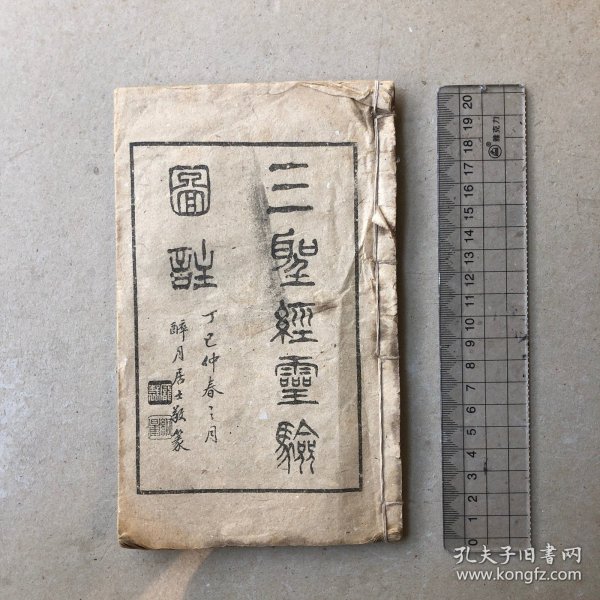 三聖經靈驗
圖註
丁巳仲春之月
醉月居士敬篆
0 1 2 3 4 5 6 7 8 9 10 11 12 13 14 15 16 17 18 19 20
雅克力
孔夫子旧书网
www.kongfz.com